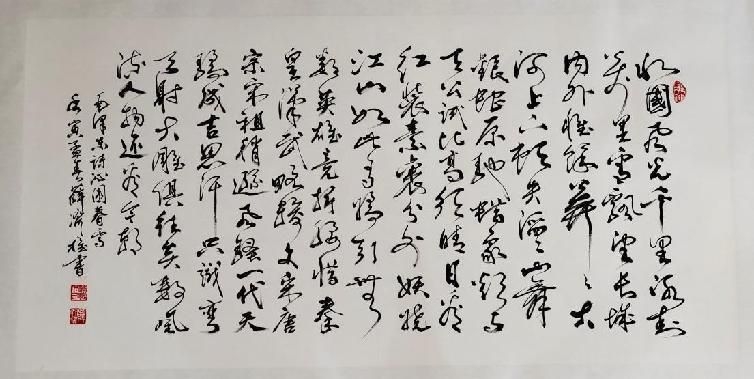 北國風光千里冰封
萬里雪飄望長城
内外惟餘莽〻大
河上下頓失滔〻山舞
銀蛇原馳蠟象欲与
天公試比高須晴日看
红裝素裹分外妖娆
江山如此多嬌引無
數英雄竞折腰惜秦
皇漢武略輸文采唐
宗宋祖稍遜風騷一代天
驕成吉思汗只識彎
弓射大雕俱往矣數風
流人物还看今朝
毛澤东詩沁園春雪
壬寅孟春薛書